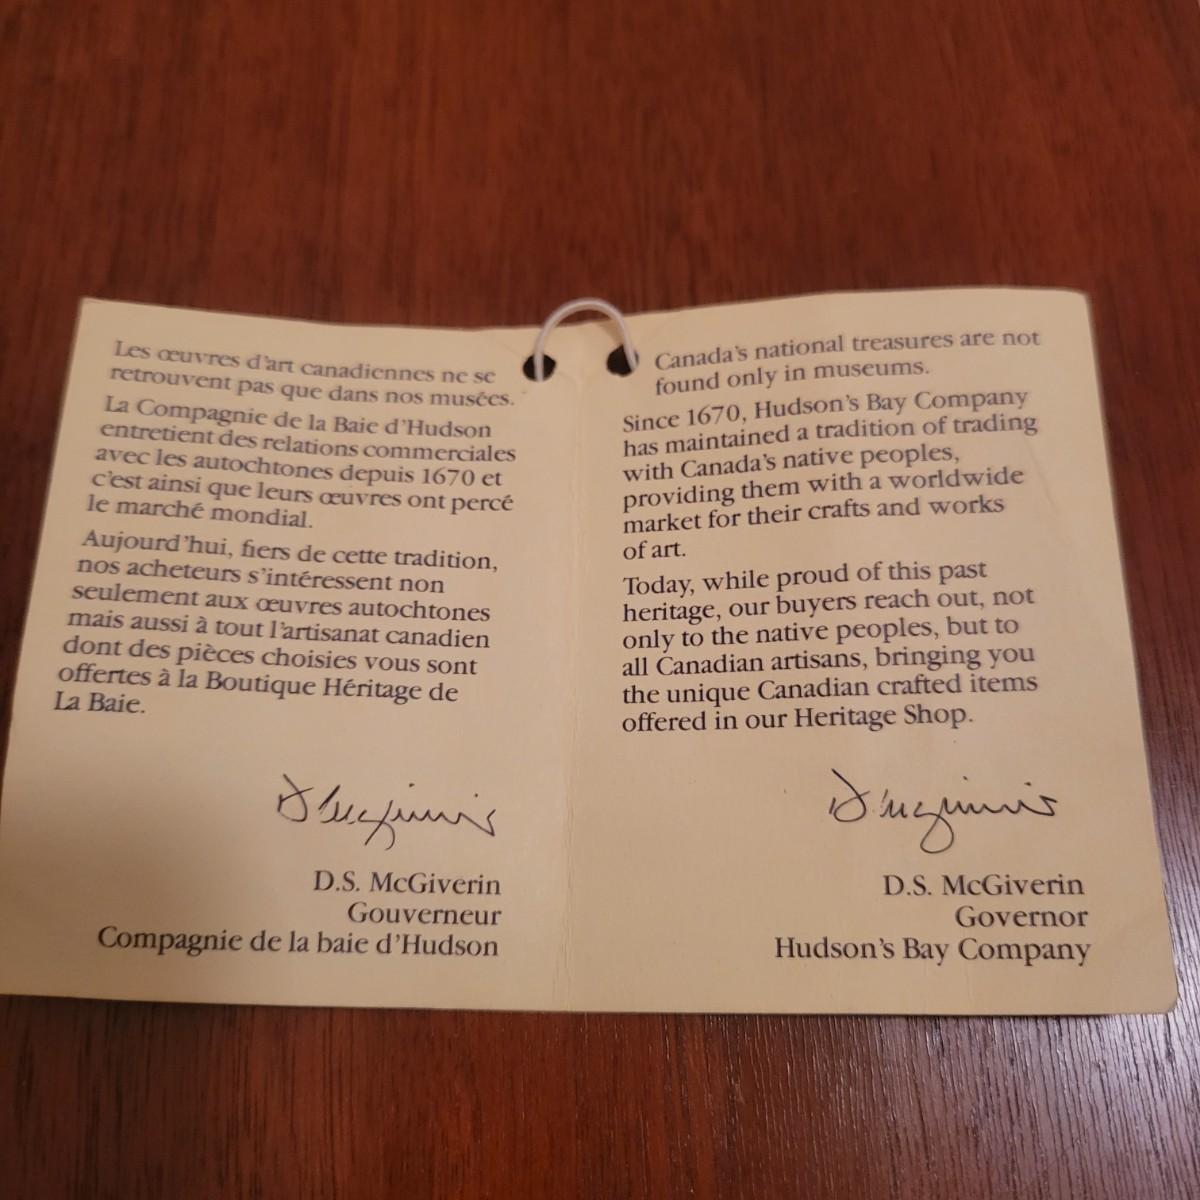 Les œuvres d'art canadiennes ne se
retrouvent pas que dans nos musées.
La Compagnie de la Baie d'Hudson
entretient des relations commerciales
avec les autochtones depuis 1670 et
c'est ainsi que leurs œuvres ont percé
le marché mondial.
Aujourd'hui, fiers de cette tradition,
nos acheteurs s'intéressent non
seulement aux œuvres autochtones
mais aussi à tout l'artisanat canadien
dont des pièces choisies vous sont
offertes à la Boutique Héritage de
La Baie.
D.S. McGiverin
Gouverneur
Compagnie de la baie d'Hudson
Canada's national treasures are not
found only in museums.
Since 1670, Hudson's Bay Company
has maintained a tradition of trading
with Canada's native peoples,
providing them with a worldwide
market for their crafts and works
of art.
Today, while proud of this past
heritage, our buyers reach out, not
only to the native peoples, but to
all Canadian artisans, bringing you
the unique Canadian crafted items
offered in our Heritage Shop.
D.S. McGiverin
Governor
Hudson's Bay Company